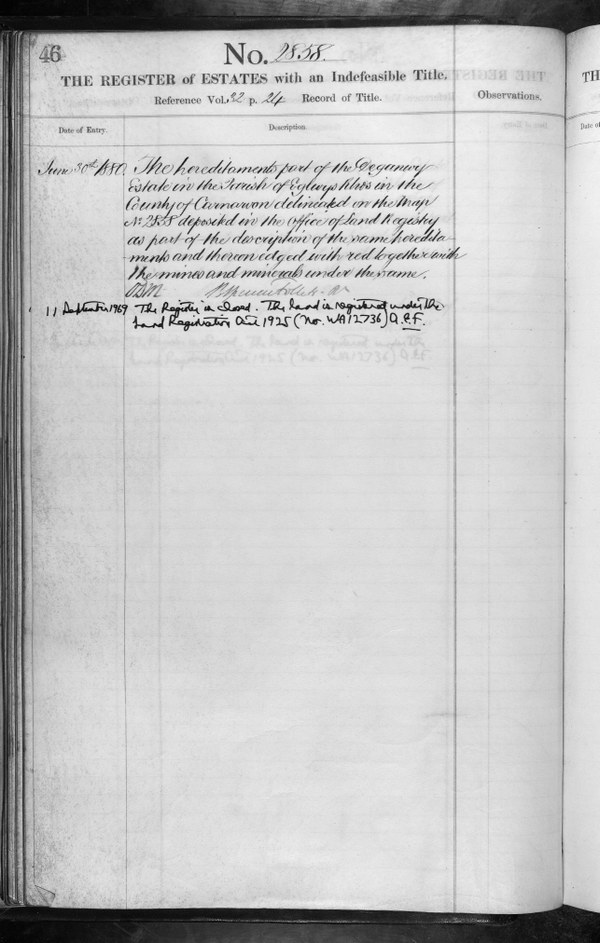 46
No. 2858.
THE REGISTER of ESTATES with an Indefeasible Title.
Reference Vol. 32 p. 24 Record of Title.
Observations.
Date of Entry.
Description
June 30th 1880. The hereditaments part of the Deganwy
Estate in the Parish of Eglwys Rhos in the
County of Carnarvon delineated on the Map
No 2858 deposited in the Office of Land Registry
as part of the description of the same heredita-
ments and thereon edged with red together with
the mines and minerals under the same.
11 September 1969 The Register is closed. The land is registered under the
Land Registration Act 1925 (No. WA12736) A.E.F.
TH
Date of